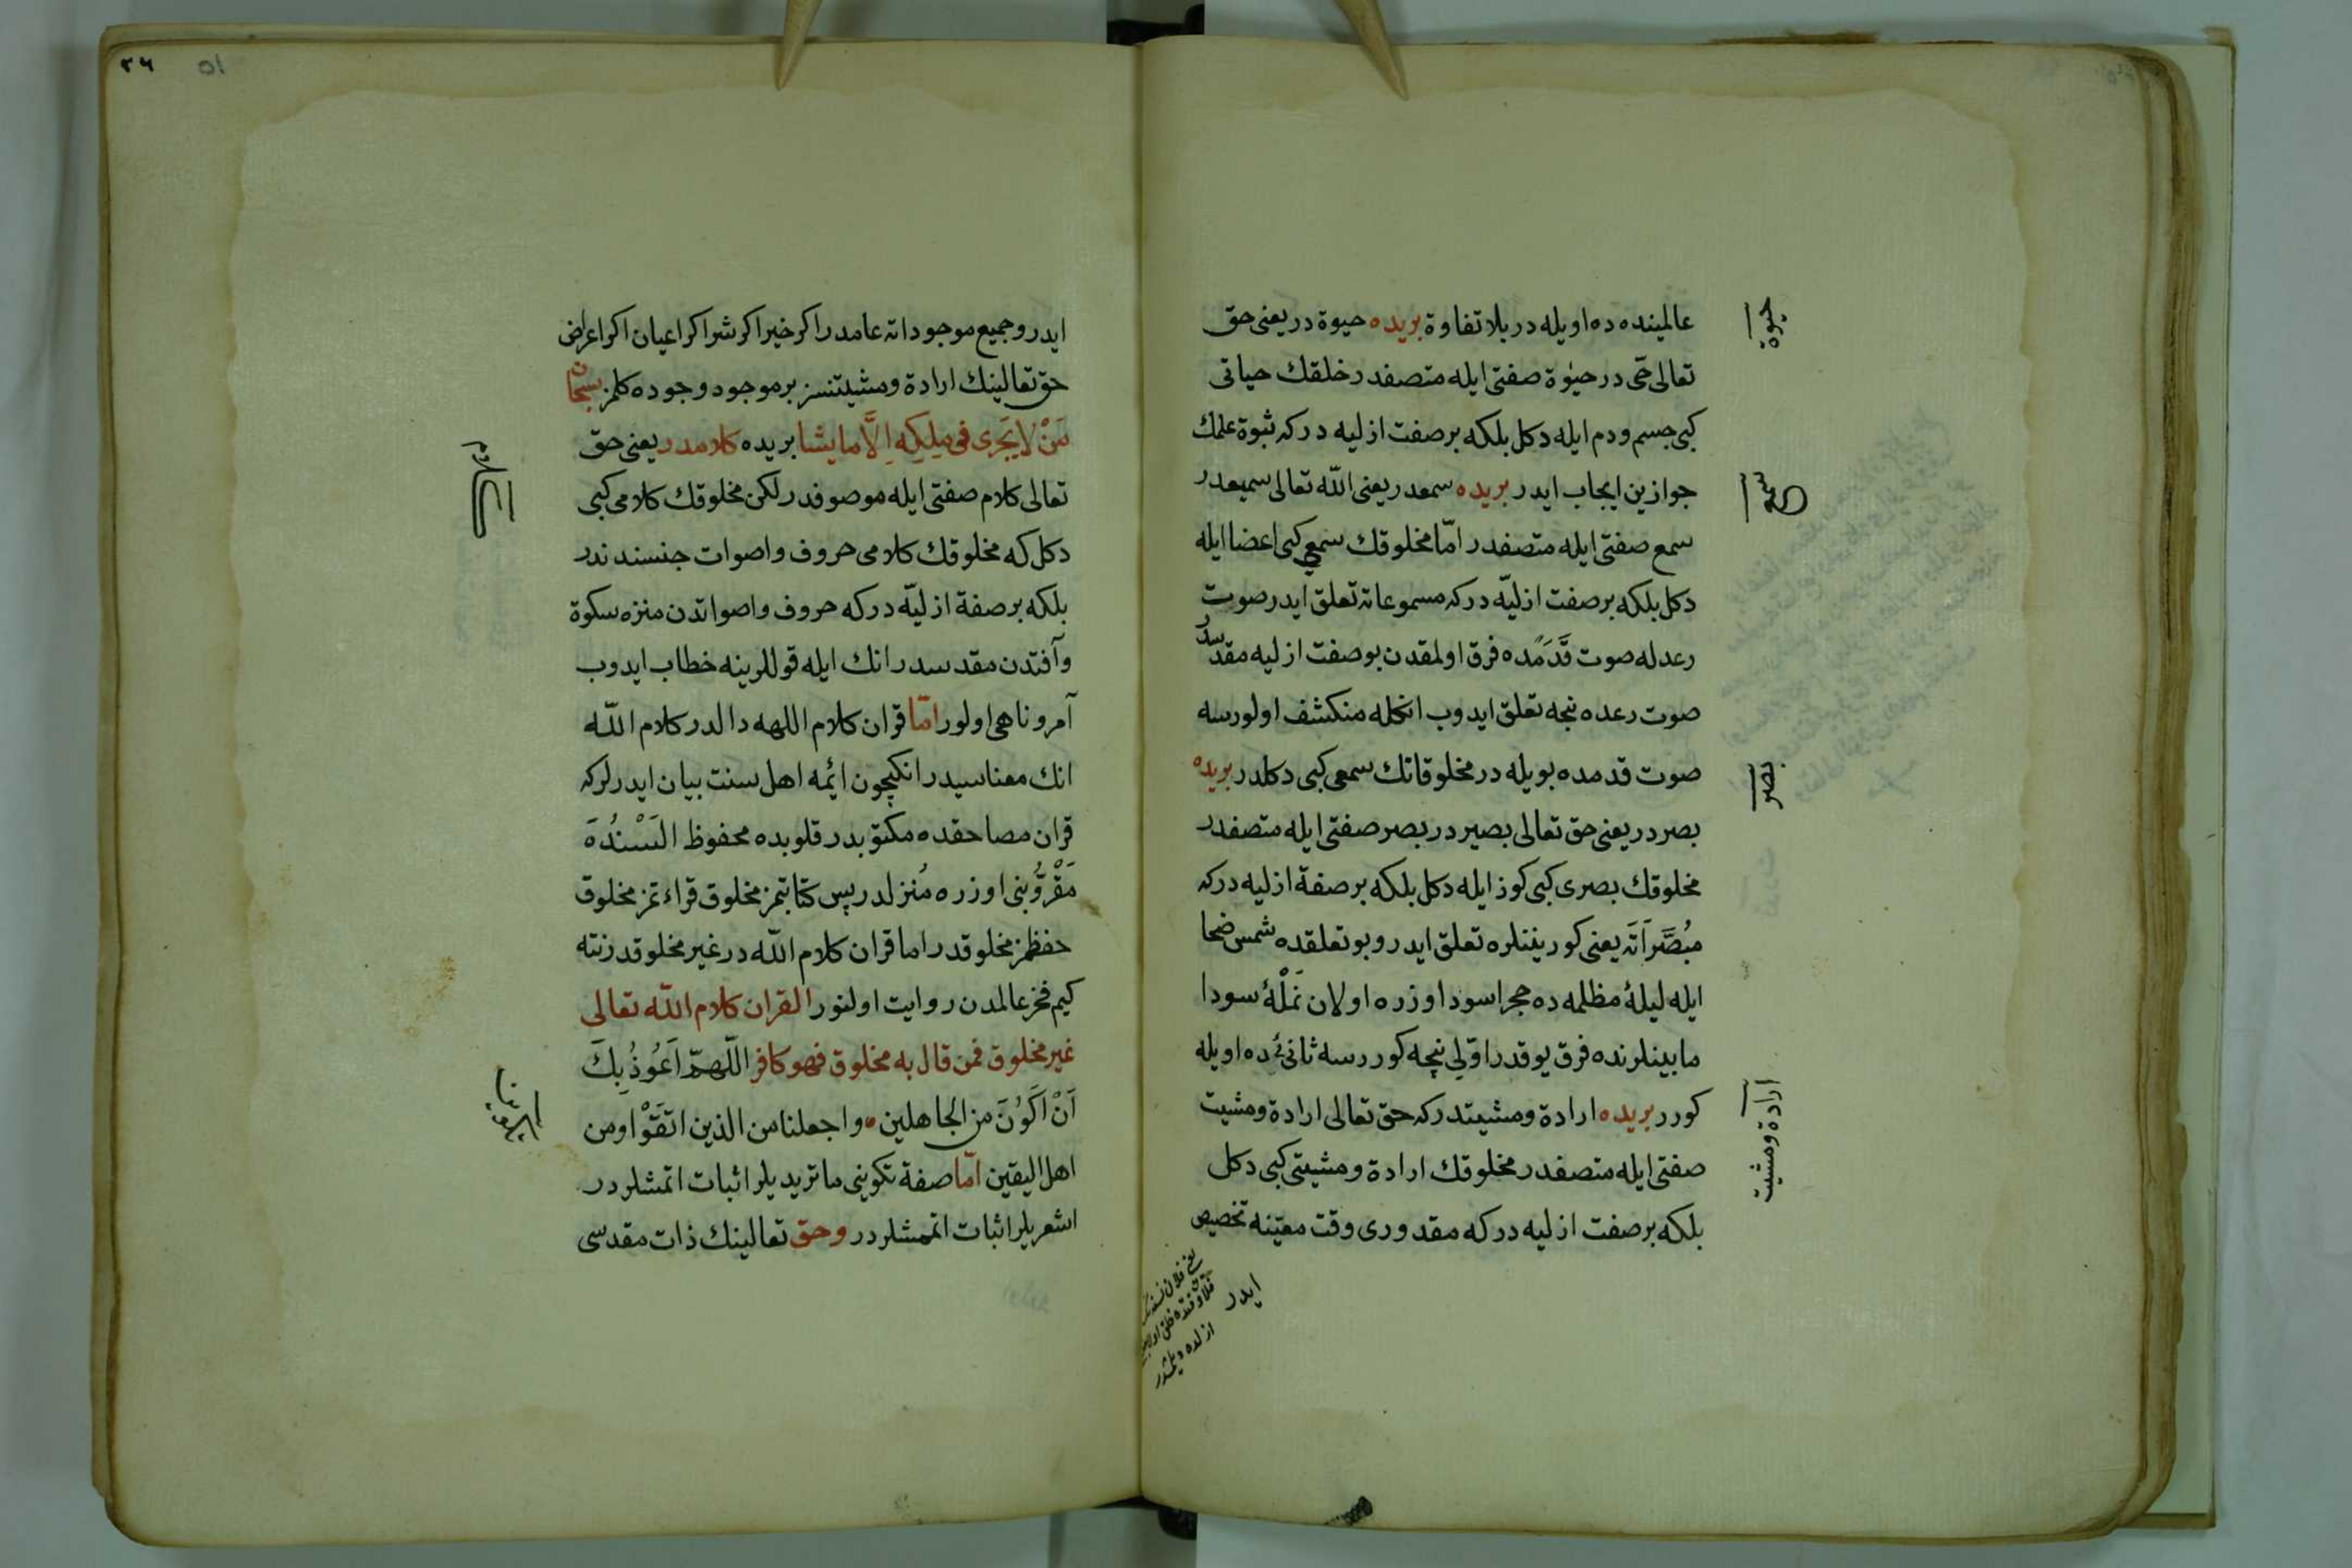 عالمینده ده اویله در بلا تفاوة بریده حیوة در یعنی حق
تعالی حی در حیوة صفتی ایله متصفدر خلقك حیاتی
کبی جسم و دم ایله دکل بلکه بر صفت ازلیه در که ثبوة علمك
جوازین ایجاب ایدر بریده سمعدر یعنی الله تعالی سمیعدر
سمع صفتی ایله متصفدر امّا مخلوقك سمعی کبی اعضا ایله
دکل بلکه بر صفت ازلیّه در که مسموعاته تعلق ایدر صوت
رعدله صوت قدمده فرق اولمقدن بو صفت ازلیه مقدسدر
صوت رعده نیجه تعلق ایدوب انکله منکشف اولورسه
صوت قدمده بویله در مخلوقاتك سمعی کبی دکلدر بریده
بصر در یعنی حق تعالی بصیر در بصر صفتی ایله متصفدر
مخلوقك بصری کبی کوز ایله دکل بلکه بر صفة ازلیه در که
مُبْصَراته یعنی کوریننلره تعلق ایدر و بو تعلقده شمس ضحا
ایله لیلۀ مظلمه ده حجر اسود اوزره اولان نَمْلۀ سودا
مابینلرنده فرق یوقدر اوّلی نیجه کوررسه ثانیٔ ده اویله
کورر بریده ارادة و مشیتدر که حق تعالی ارادة و مشیت
صفتی ایله متصفدر مخلوقك ارادة و مشیتی کبی دکل
بلکه بر صفت ازلیه در که مقدوری وقت معیّنه تخصیص
ایدر
حیوة
سمع
بصر
ارادة و مشیت
ازلده
٣٦
٥١
ایدر و جمیع موجوداته عامدر اکر خیر اکر شر اکر اعیان اکر اعراض
حق تعالینك ارادة و مشیتنسز بر موجود وجوده کلمز سبحان
مَنْ لا یَجری فی مِلکِه اِلَّا ما یشا بریده کلامدر یعنی حق
تعالی کلام صفتی ایله موصوفدر لکن مخلوقك کلامی کبی
دکل که مخلوقك کلامی حروف و اصوات جنسندندر
بلکه بر صفة ازلیّه در که حروف و اصواتدن منزه سکوة
و آفتدن مقدسدر انك ایله قوللرینه خطاب ایدوب
آمر و ناهی اولور امّا قران کلام اللهه دالدر کلام الله
انك معناسیدر انکیچون ائمه اهل سنت بیان ایدرلر که
قران مصاحفده مکتوبدر قلوبده محفوظ اَلْسِنُدَه
مَقْرُوّ بنی اوزره مُنزلدر پس کتابتمز مخلوق قراءتمز مخلوق
حفظمز مخلوقدر اما قران کلام الله در غیر مخلوقدر نته
کیم فخر عالمدن روایت اولنور القران کلام الله تعالی
غیر مخلوق فمن قال به مخلوق فهو کافر اللّهمّ اَعُوذُ بِكَ
اَنْ اَکُونَ من الجاهلین واجعلنا من الذین اتقَوْا و من
اهل الیقین امّا صفة تکوینی ماتریدیلر اثبات اتمشلردر
اشعریلر اثبات اتممشلردر و حق تعالینك ذات مقدسی
کلام
تکوین